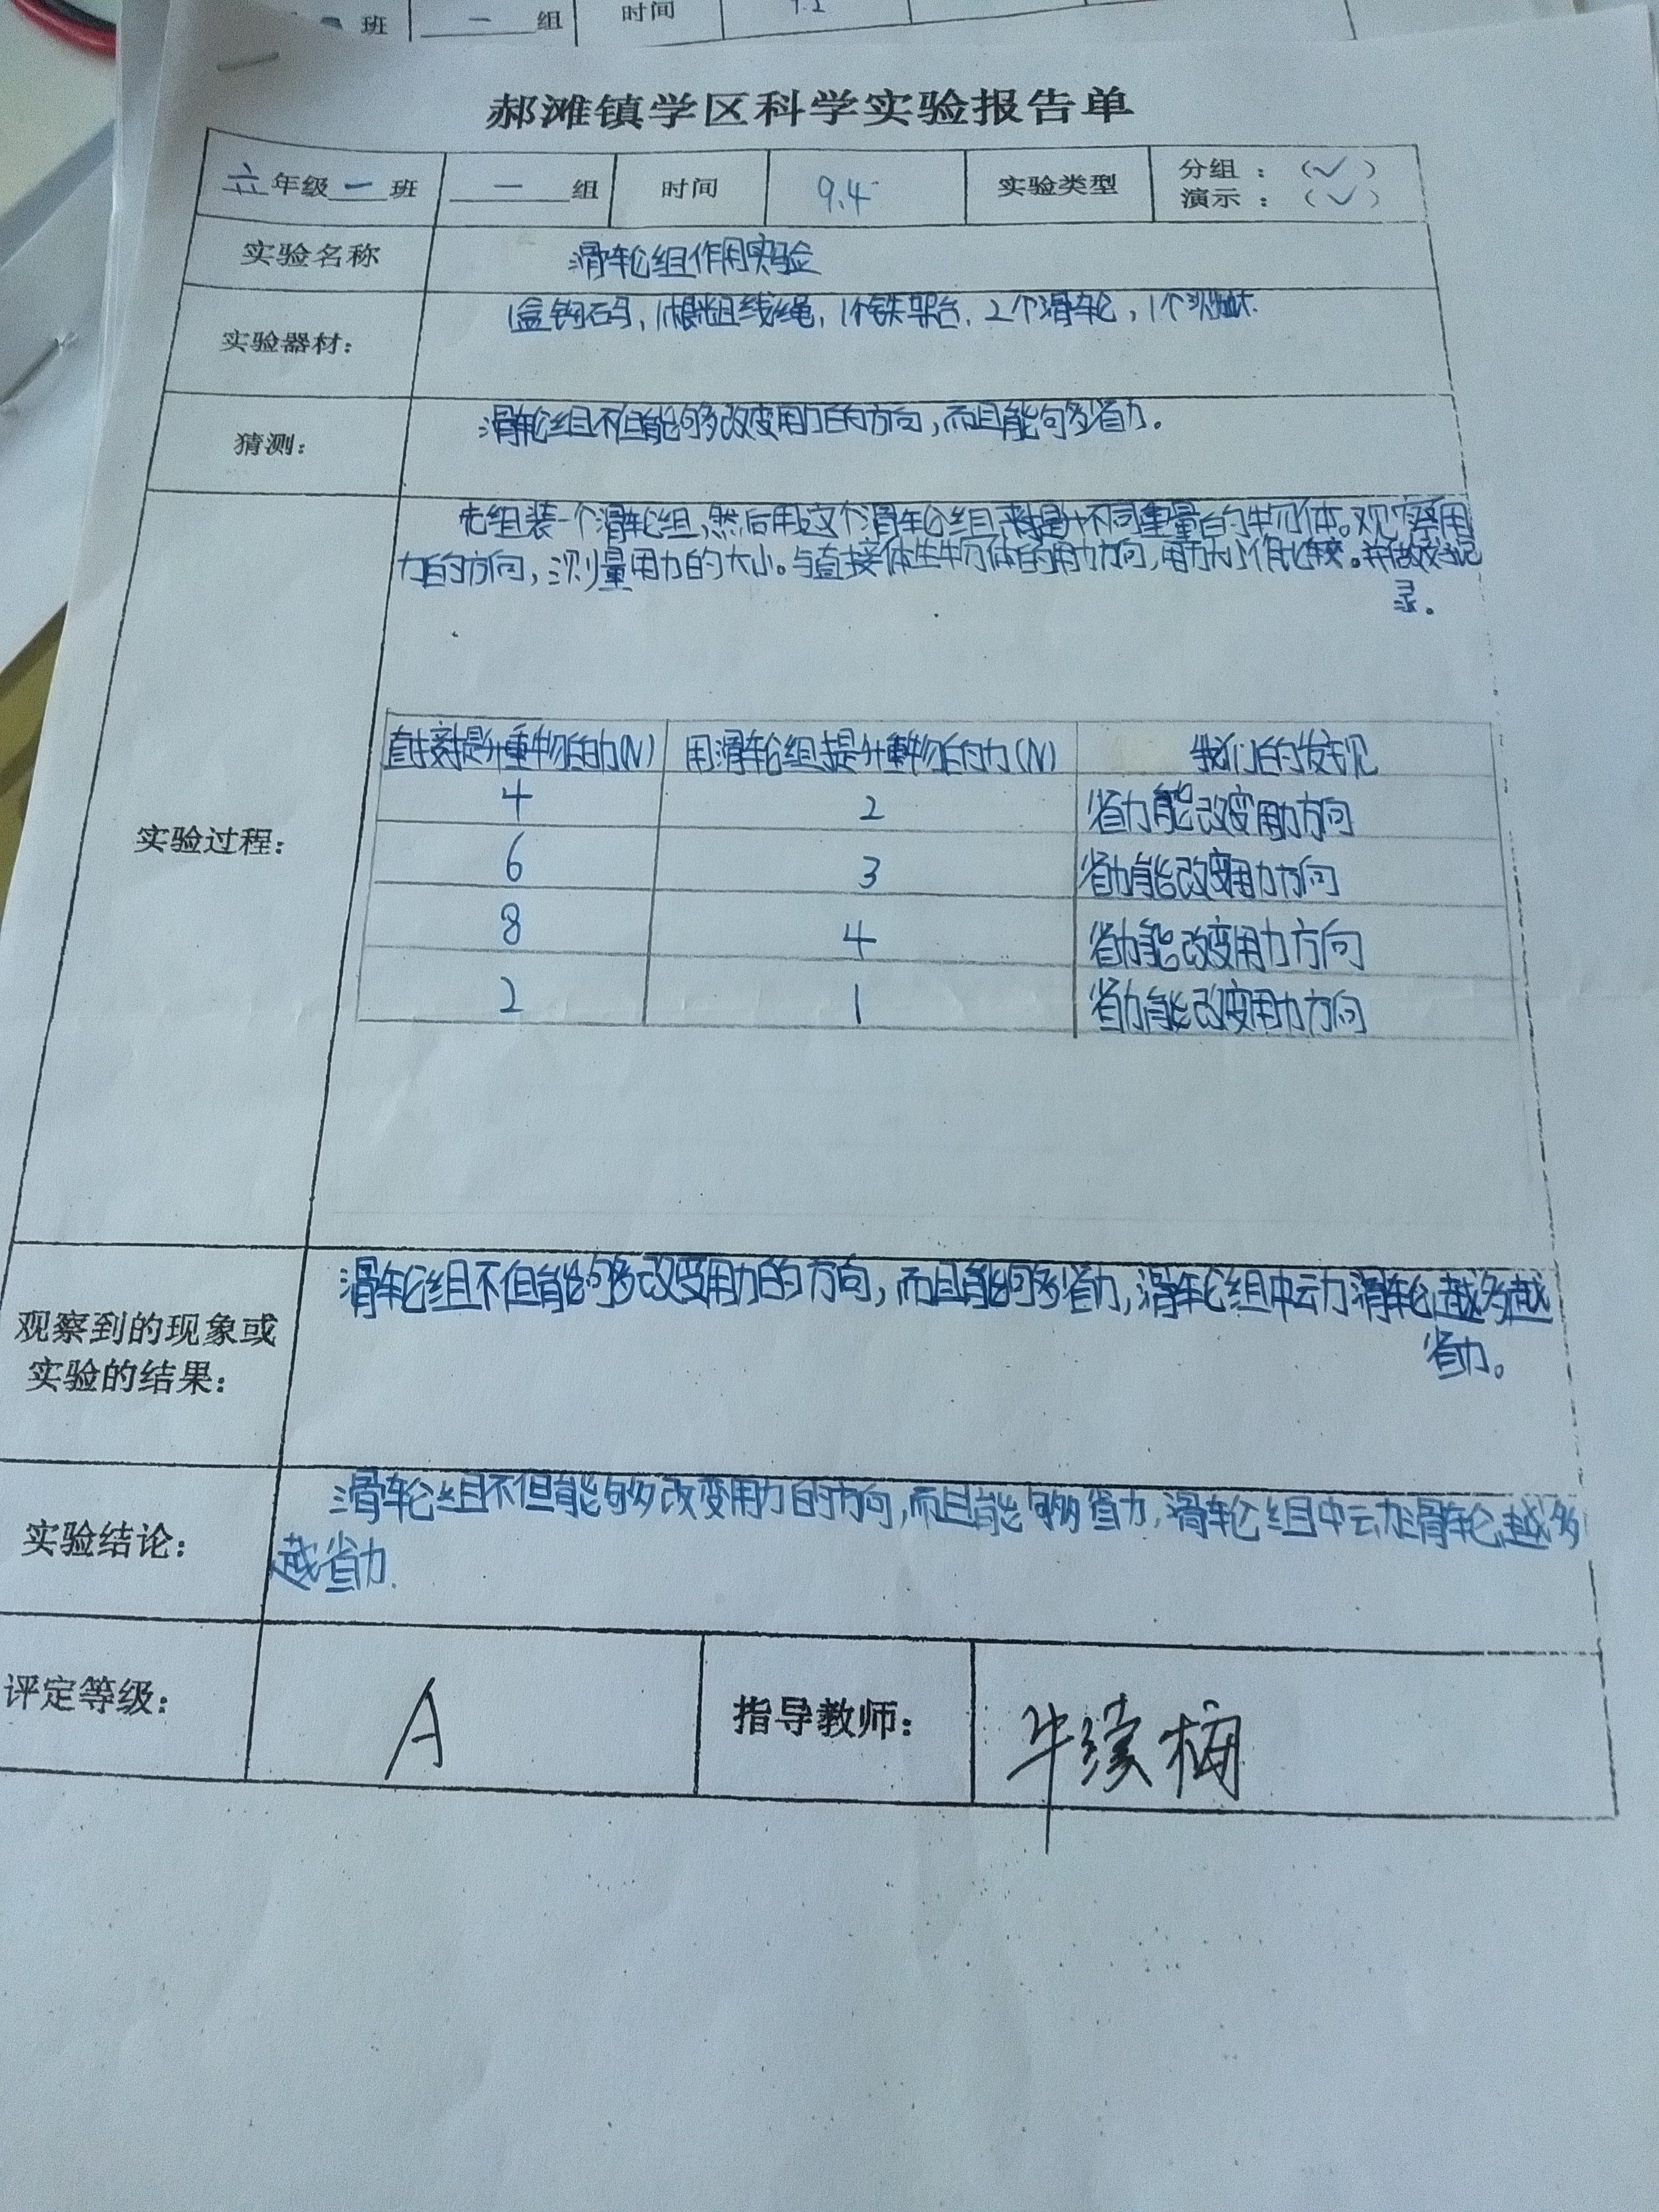 班 一 组 时间 9.2
郝滩镇学区科学实验报告单
六年级一班 一组 时间 9.4 实验类型 分组：（✓）
演示：（✓）
实验名称 滑轮组作用实验
实验器材： 1盒钩码，1根粗线绳，1个铁架台，2个滑轮，1个
猜测： 滑轮组不但能够改变用力的方向，而且能够省力。
先组装一个滑轮组，然后用这个滑轮组来提升不同重量的物体。观察用
力的方向，测量用力的大小。与直接体升物体的用力方向，用力大小作比较。并做好记
录。
实验过程：
直接提升重物的力(N) 用滑轮组提升重物的力(N) 我们的发现
4 2 省力能改变用力方向
6 3 省力能改变用力方向
8 4 省力能改变用力方向
2 1 省力能改变用力方向
观察到的现象或
实验的结果：
滑轮组不但能够改变用力的方向，而且能够省力，滑轮组中动滑轮越多越
省力。
实验结论：
滑轮组不但能够改变用力的方向，而且能够省力，滑轮组中动滑轮越多
越省力.
评定等级： A 指导教师： 牛续梅